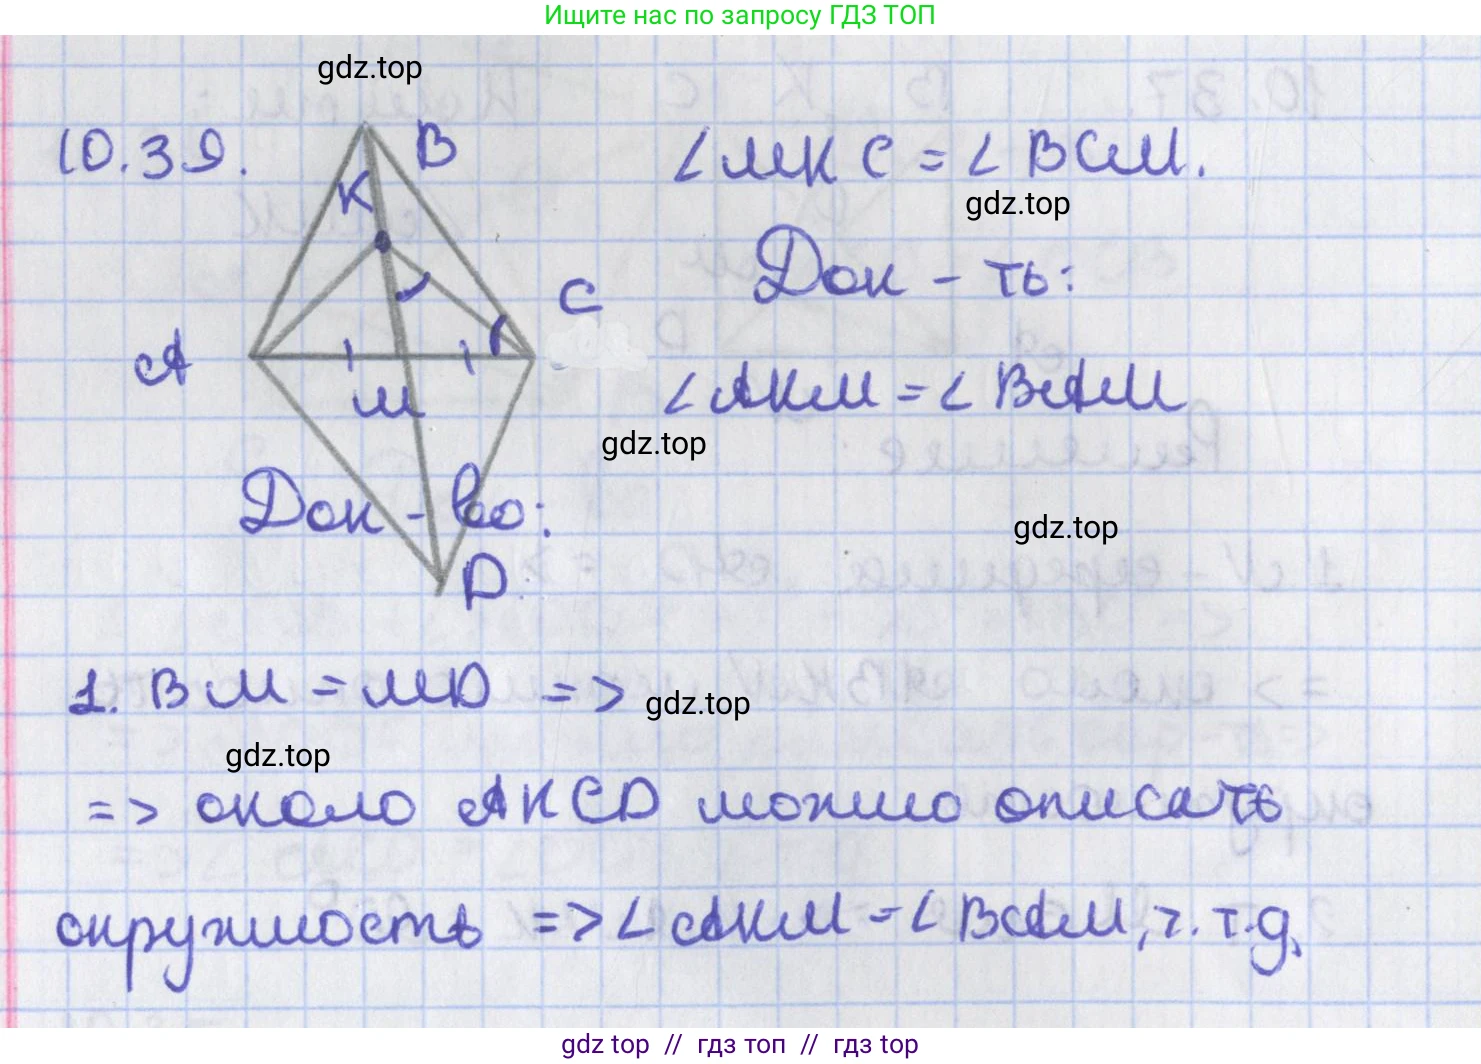 Ищите нас по запросу ГДЗ ТОП
gdz.top
10.39.
B
K
∠MKC = ∠BCM.
gdz.top
Док-ть:
C
A
M
∠AKM = ∠BAM
gdz.top
Док-во:
gdz.top
D
1. BM = MD =>
gdz.top
gdz.top
=> около AKCD можно описать
окружность => ∠AKM = ∠BAM, ч.т.д.
gdz top // гдз топ // гдз top